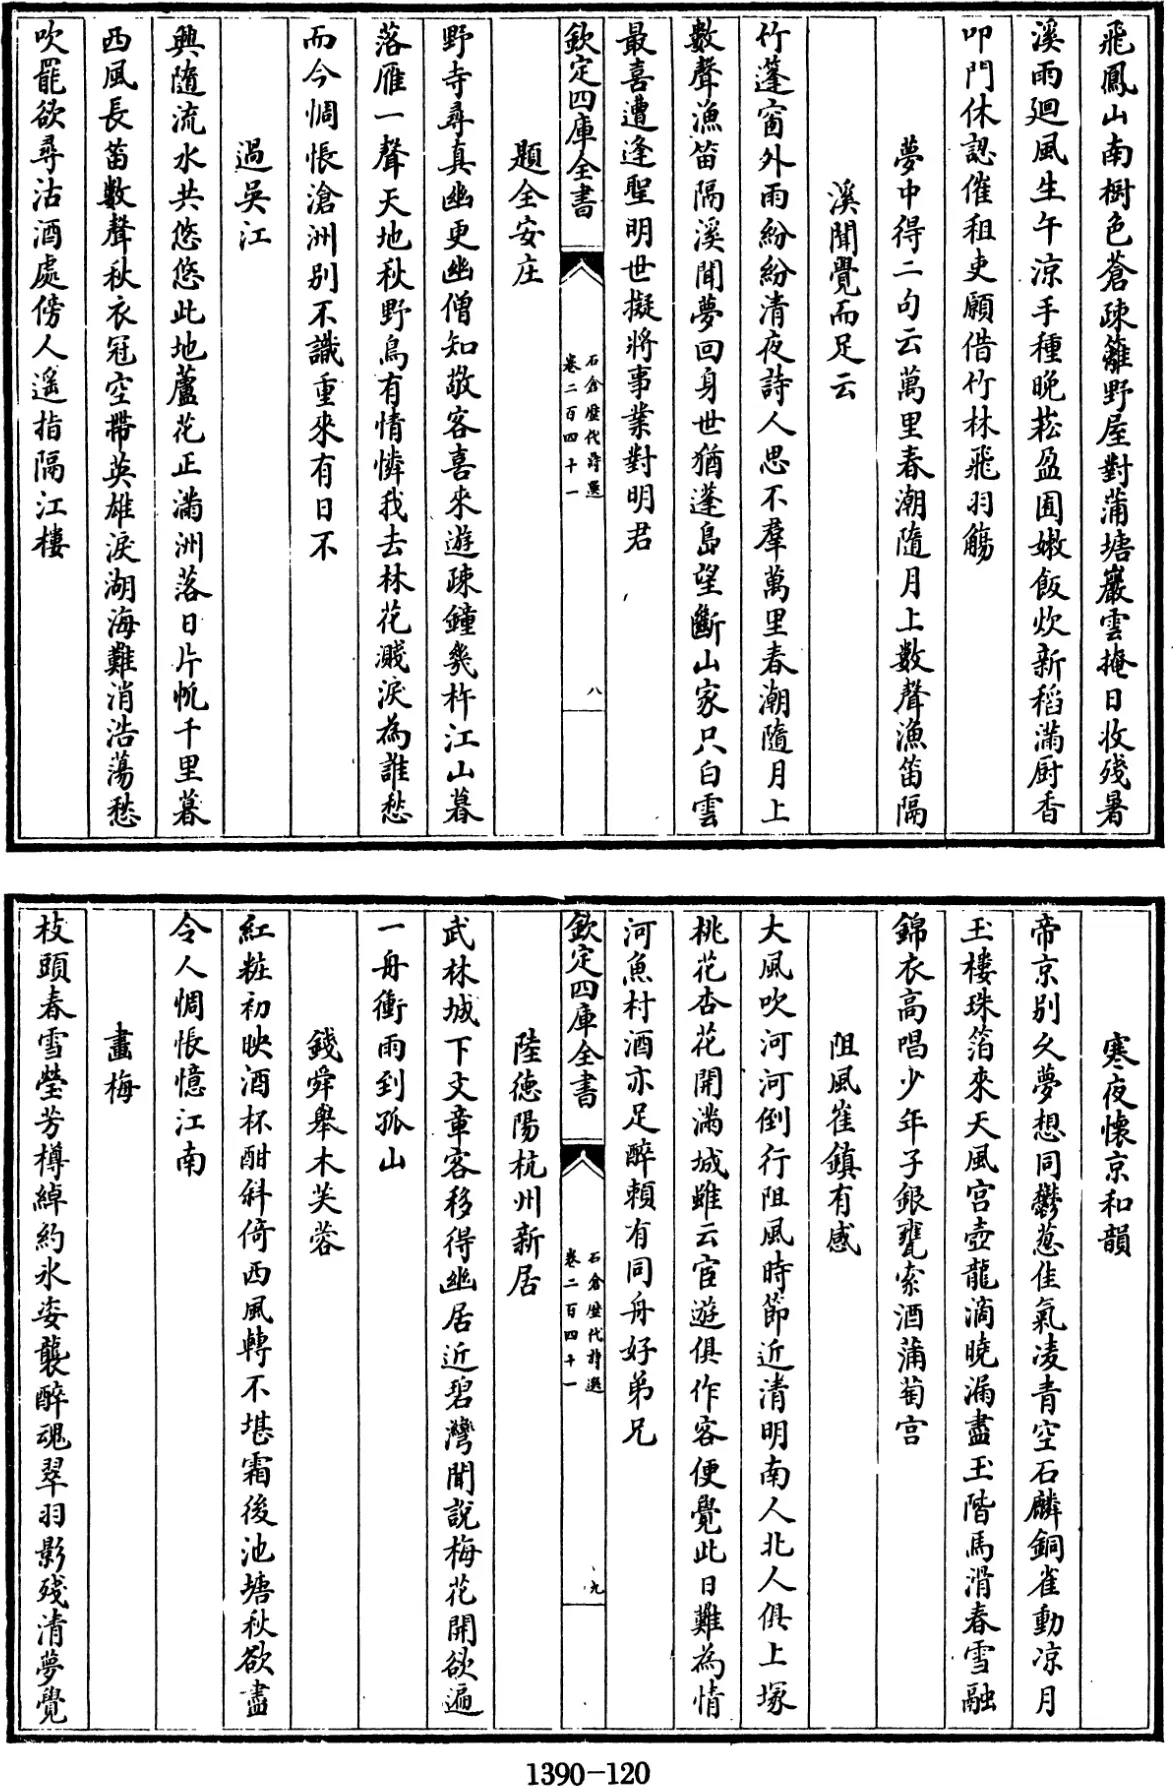 飛鳳山南樹色蒼疎籬野屋對蒲塘巖雲掩日收殘暑
溪雨廻風生午凉手種晚菘盈圃嫩飯炊新稻滿厨香
叩門休認催租吏願借竹林飛羽觴
夢中得二句云萬里春潮隨月上數聲漁笛隔
溪聞覺而足云
竹蓬窗外雨紛紛清夜詩人思不羣萬里春潮隨月上
數聲漁笛隔溪聞夢回身世猶蓬島望斷山家只白雲
最喜遭逢聖明世擬將事業對明君
欽定四庫全書
石倉歷代詩選
卷二百四十一
八
題全安庄
野寺尋真幽更幽僧知敬客喜來遊疎鐘幾杵江山暮
落雁一聲天地秋野鳥有情憐我去林花濺淚為誰愁
而今惆悵滄洲别不識重來有日不
過吳江
興隨流水共悠悠此地蘆花正滿洲落日片帆千里暮
西風長笛數聲秋衣冠空帶英雄淚湖海難消浩蕩愁
吹罷欲尋沽酒處傍人遥指隔江樓
寒夜懷京和韻
帝京别久夢想同鬱葱佳氣凌青空石麟銅雀動凉月
玉樓珠箔來天風宫壺龍滴曉漏盡玉階馬滑春雪融
錦衣高唱少年子銀甕索酒蒲萄宫
阻風崔鎮有感
大風吹河河倒行阻風時節近清明南人北人俱上塚
桃花杏花開滿城雖云宦遊俱作客便覺此日難為情
河魚村酒亦足醉賴有同舟好弟兄
欽定四庫全書
石倉歷代詩選
卷二百四十一
九
陸德陽杭州新居
武林城下文章客移得幽居近碧灣聞說梅花開欲遍
一舟衝雨到孤山
錢舜舉木芙蓉
紅粧初映酒杯酣斜倚西風轉不堪霜後池塘秋欲盡
令人惆悵憶江南
畫梅
枝頭春雪瑩芳樽綽約氷姿襲醉魂翠羽影殘清夢覺
1390-120